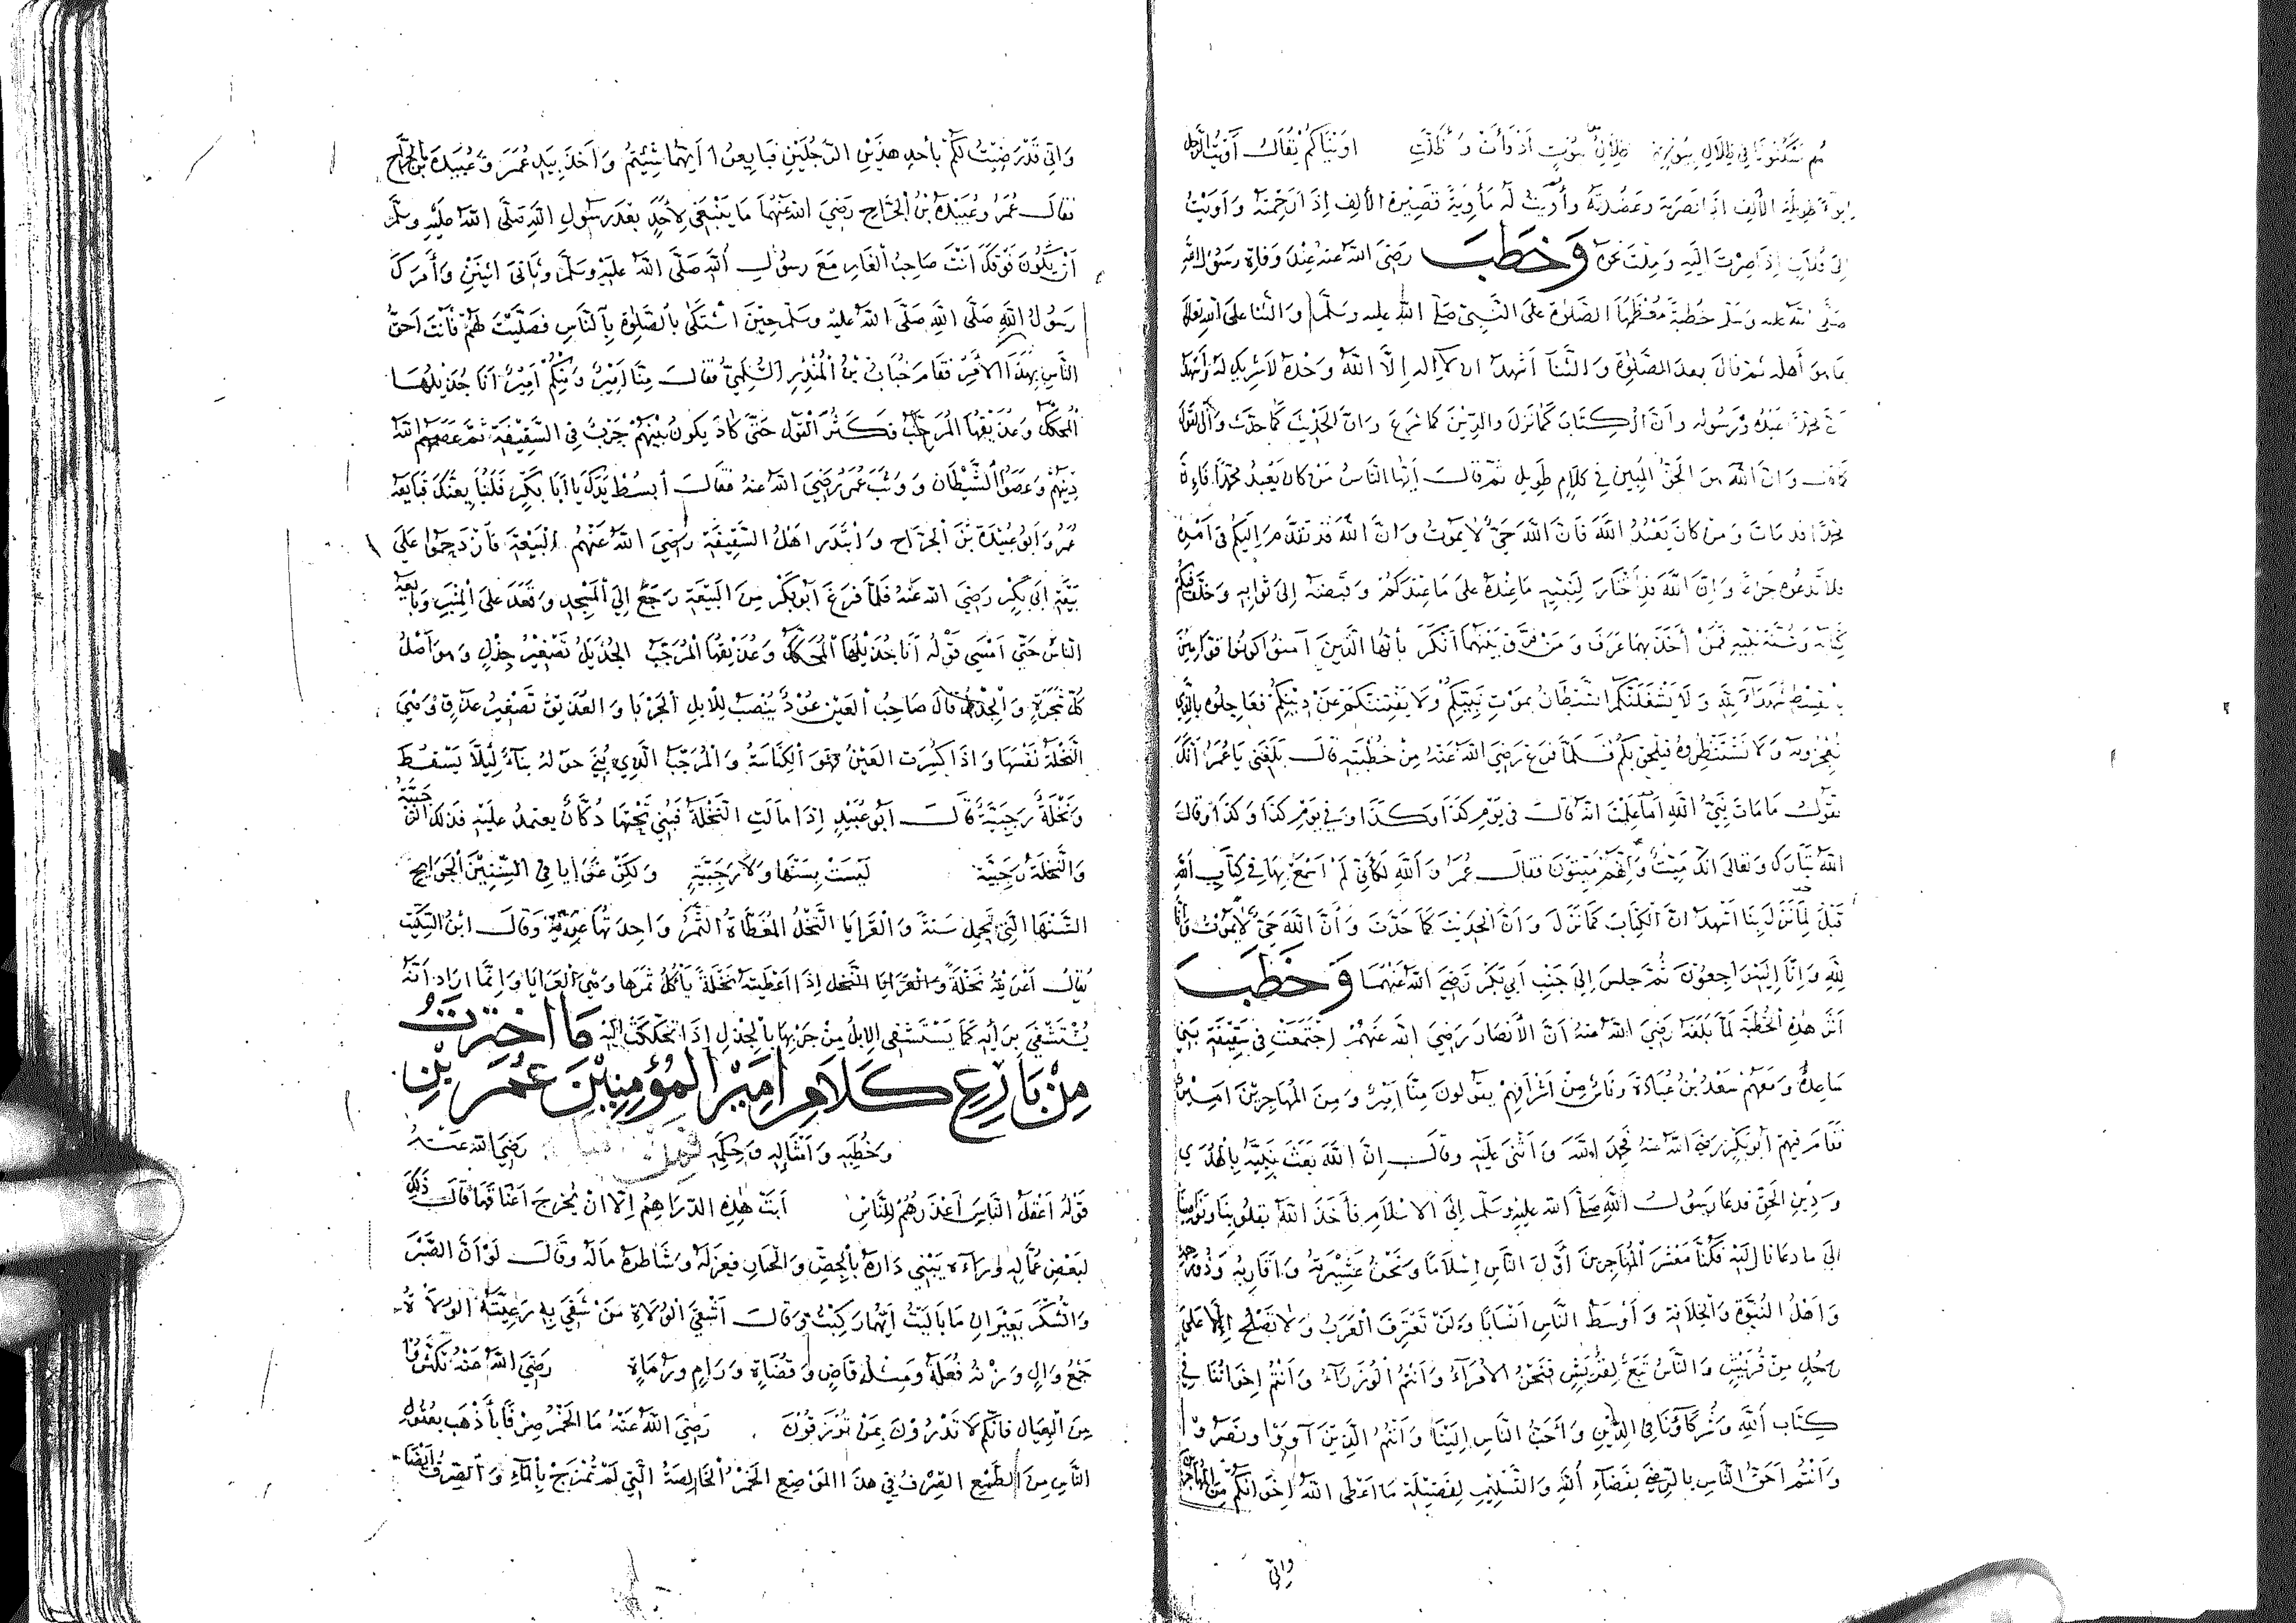 اذ وأت وأظلت اويناكم يقال أويت الرجل
طويلة الألف اذا نصرته وعضدته وأويت له مأوية قصيرة الألف إذا رحمته وأويت
الى فلان إذا صرت اليه وملت نحوه وخطب رضي الله عنه عند وفاة رسول الله
صلى الله عليه وسلم خطبة معظمها الصلوة على النبي صلى الله عليه وسلم والثنا على الله تعالى
بما هو أهله ثم قال بعد الصلوة والثنا أشهد ان لا إله إلا الله وحده لا شريك له وأشهد
أن محمدا عبده ورسوله وأن الكتاب كما نزل والدين كما شرع وان الحديث كما حدث وأن القول
كما قال وان الله هو الحق المبين في كلام طويل ثم قال أيها الناس من كان يعبد محمدا فان
محمدا قد مات ومن كان يعبد الله فان الله حي لا يموت وان الله قد تقدم إليكم في أمره
فلا تدعوه جزعا وإن الله قد اختار لنبيه ما عنده على ما عندكم وقبضه إلى ثوابه وخلف فيكم
كتابه وسنة نبيه فمن أخذ بهما عرف ومن فرق بينهما أنكر يأيها الذين آمنوا كونوا قوامين
بالقسط شهداء لله ولا يشغلنكم الشيطان بموت نبيكم ولا يفتننكم عن دينكم فعاجلوه بالذي
تعجزونه ولا تستنظروه فيلحق بكم فلما فرغ رضي الله عنه من خطبته قال بلغني يا عمر أنك
تقول ما مات نبي الله أما علمت انه قال في يوم كذا وكذا وفي يوم كذا وكذا وقال
الله تبارك وتعالى انك ميت وإنهم ميتون فقال عمر والله لكأني لم اسمع بها في كتاب الله
قبل لما نزل بنا أشهد ان الكتاب كما نزل وان الحديث كما حدث وأن الله حي لا يموت وإنا
لله وإنا إليه راجعون ثم جلس إلى جنب أبي بكر رضي الله عنهما وخطب
أثر هذه الخطبة لما بلغه رضي الله عنه أن الأنصار رضي الله عنهم اجتمعت في سقيفة بني
ساعدة ومعهم سعد بن عبادة وناس من أشرافهم يقولون منا أمير ومن المهاجرين أمير
فقام فيهم أبو بكر رضي الله عنه فحمد الله وأثنى عليه وقال إن الله بعث نبيه بالهدى
ودين الحق فدعا رسول الله صلى الله عليه وسلم إلى الاسلام فأخذ الله بقلوبنا ونواصينا
الى ما دعانا إليه فكنا معشر المهاجرين أول الناس إسلاما ونحن عشيرته وأقاربه وذوو رحمه
وأهل النبوة والخلافة وأوسط الناس أنسابا ولن تعترف العرب ولا تصلح إلا على
رجل من قريش والناس تبع لقريش فنحن الأمراء وأنتم الوزراء وأنتم إخواننا في
كتاب الله وشركاؤنا في الدين وأحب الناس إلينا وأنتم الذين آووا ونصروا
وأنتم أحق الناس بالرضى بقضاء الله والتسليم لفضيلة ما أعطى الله إخوانكم من المهاجرين
واني
وإني قد رضيت لكم بأحد هذين الرجلين فبايعوا أيهما شئتم وأخذ بيد عمر وعبيدة بن الجراح
فقال عمر وعبيدة بن الجراح رضي الله عنهما ما ينبغي لأحد بعد رسول الله صلى الله عليه وسلم
أن يكون فوقك أنت صاحب الغار مع رسول الله صلى الله عليه وسلم وثاني اثنين وأمرك
رسول الله صلى الله صلى الله عليه وسلم حين اشتكى بالصلوة بالناس فصليت لهم فأنت أحق
الناس بهذا الأمر فقام حباب بن المنذر السلمي فقال منا أمير ومنكم أمير أنا جذيلها
المحكك وعذيقها المرجب فكثر القول حتى كاد يكون بينهم حرب في السقيفة ثم عصم الله
دينهم وعصوا الشيطان ووثب عمر رضي الله عنه فقال أبسط يدك يا أبا بكر فلنبايعنك فبايعه
عمر وأبو عبيدة بن الجراح وابتدر اهل السقيفة رضي الله عنهم البيعة فازدحموا على
بيعة أبي بكر رضي الله عنه فلما فرغ أبو بكر من البيعة رجع إلى المسجد وقعد على المنبر وبايعه
الناس حتى أمسى قوله أنا جذيلها المحكك وعذيقها المرجب الجذيل تصغير جذل وهو أصل
كل شجرة والجذل قال صاحب العين عود ينصب للابل الجربا والعذيق تصغير عذق وهي
النخلة نفسها واذا كسرت العين فهو الكباسة والمرجب الذي يبنى حوله بناء ليلا يسقط
ونخلة رجبية قال أبو عبيد إذا مالت النخلة فبني تحتها دكان يعتمد عليه فذلك الرجبة
والنخلة رجبية ليست بسنها ولا رجبية ولكن عرايا في السنين الجوايح
السنها التي تحمل سنة والعرايا النخل المعطاة الثمر واحدتها عرية وقال ابن السكيت
يقال أعريته نخلة والعرايا النخل إذا أعطيته نخلة يأكل ثمرها وهي العرايا وإنما اراد أنه
يستشفى برأيه كما يستشفي الإبل من جربها بالجذل إذا تحككت إليه ما اخترت
من بارع كلام أمير المؤمنين عمر بن
وخطبه وأمثاله وحكمه رضي الله عنه
قوله أعقل الناس أعذرهم للناس أبت هذه الدراهم إلا ان تخرج أعناقها قال ذلك
لبعض عماله ورآه يبني داره بالجص والحجار فعزله وشاطره ماله وقال لو أن الصبر
والشكر بعيران ما باليت أيهما ركبت وقال أشقى الولاة من شقي به رعيته الولاة
جمع وال وزنه فعلة ومثله قاض وقضاة ورام ورماة رضي الله عنه تكثروا
من العيال فانكم لا تدرون بمن ترزقون رضي الله عنه ما الخمر صرفا بأذهب بعقول
الناس من الطمع الصرف في هذا الموضع الخمر الخالصة التي لم تمزج بالماء والصرف ايضا